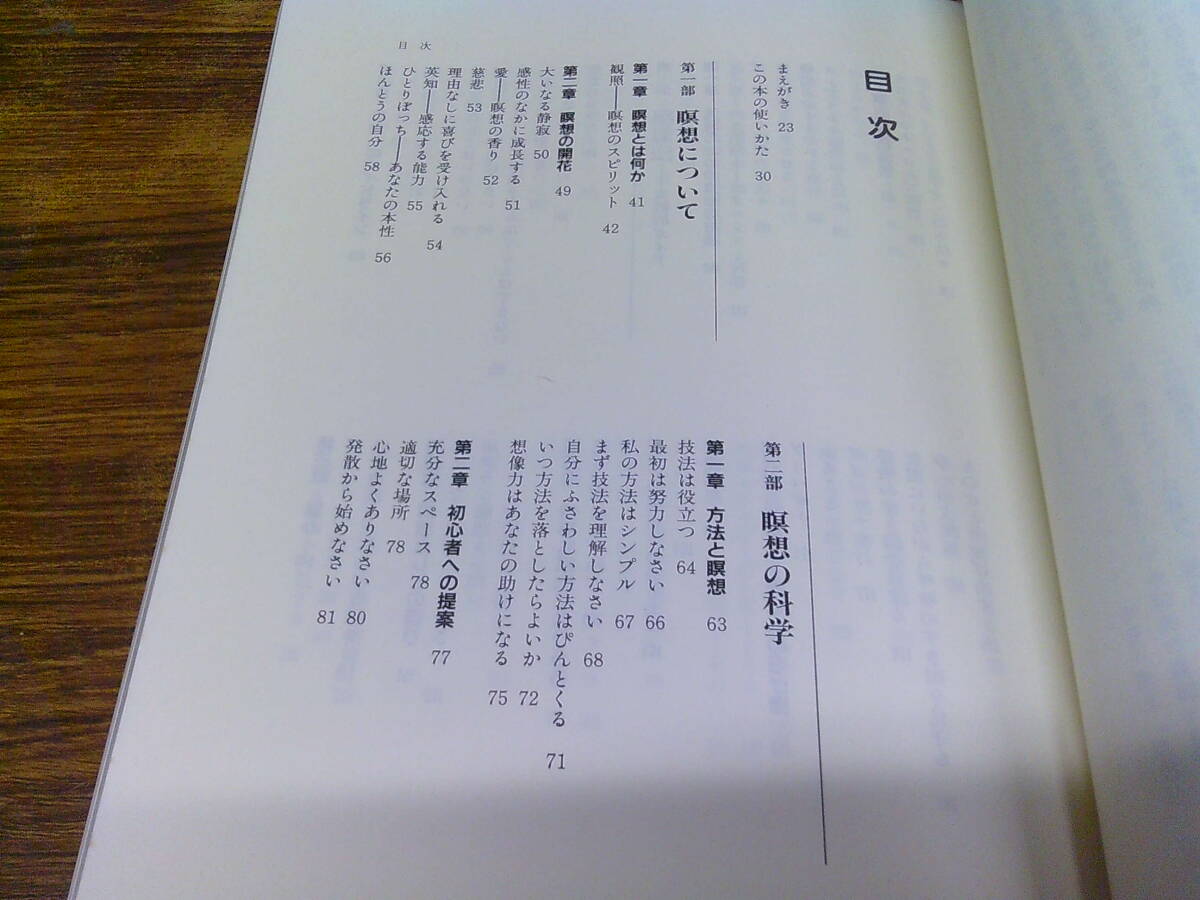 目次
まえがき 23
この本の使いかた 30
第一部 瞑想について
第一章 瞑想とは何か 41
観照――瞑想のスピリット 42
第二章 瞑想の開花 49
大いなる静寂 50
感性のなかに成長する 51
愛――瞑想の香り 52
慈悲 53
理由なしに喜びを受け入れる 54
英知――感応する能力 55
ひとりぼっち――あなたの本性 56
ほんとうの自分 58
目次
第二部 瞑想の科学
第一章 方法と瞑想 63
技法は役立つ 64
最初は努力しなさい 66
私の方法はシンプル 67
まず技法を理解しなさい 68
自分にふさわしい方法はぴんとくる 71
いつ方法を落としたらよいか 72
想像力はあなたの助けになる 75
第二章 初心者への提案 77
充分なスペース 78
適切な場所 78
心地よくありなさい 80
発散から始めなさい 81